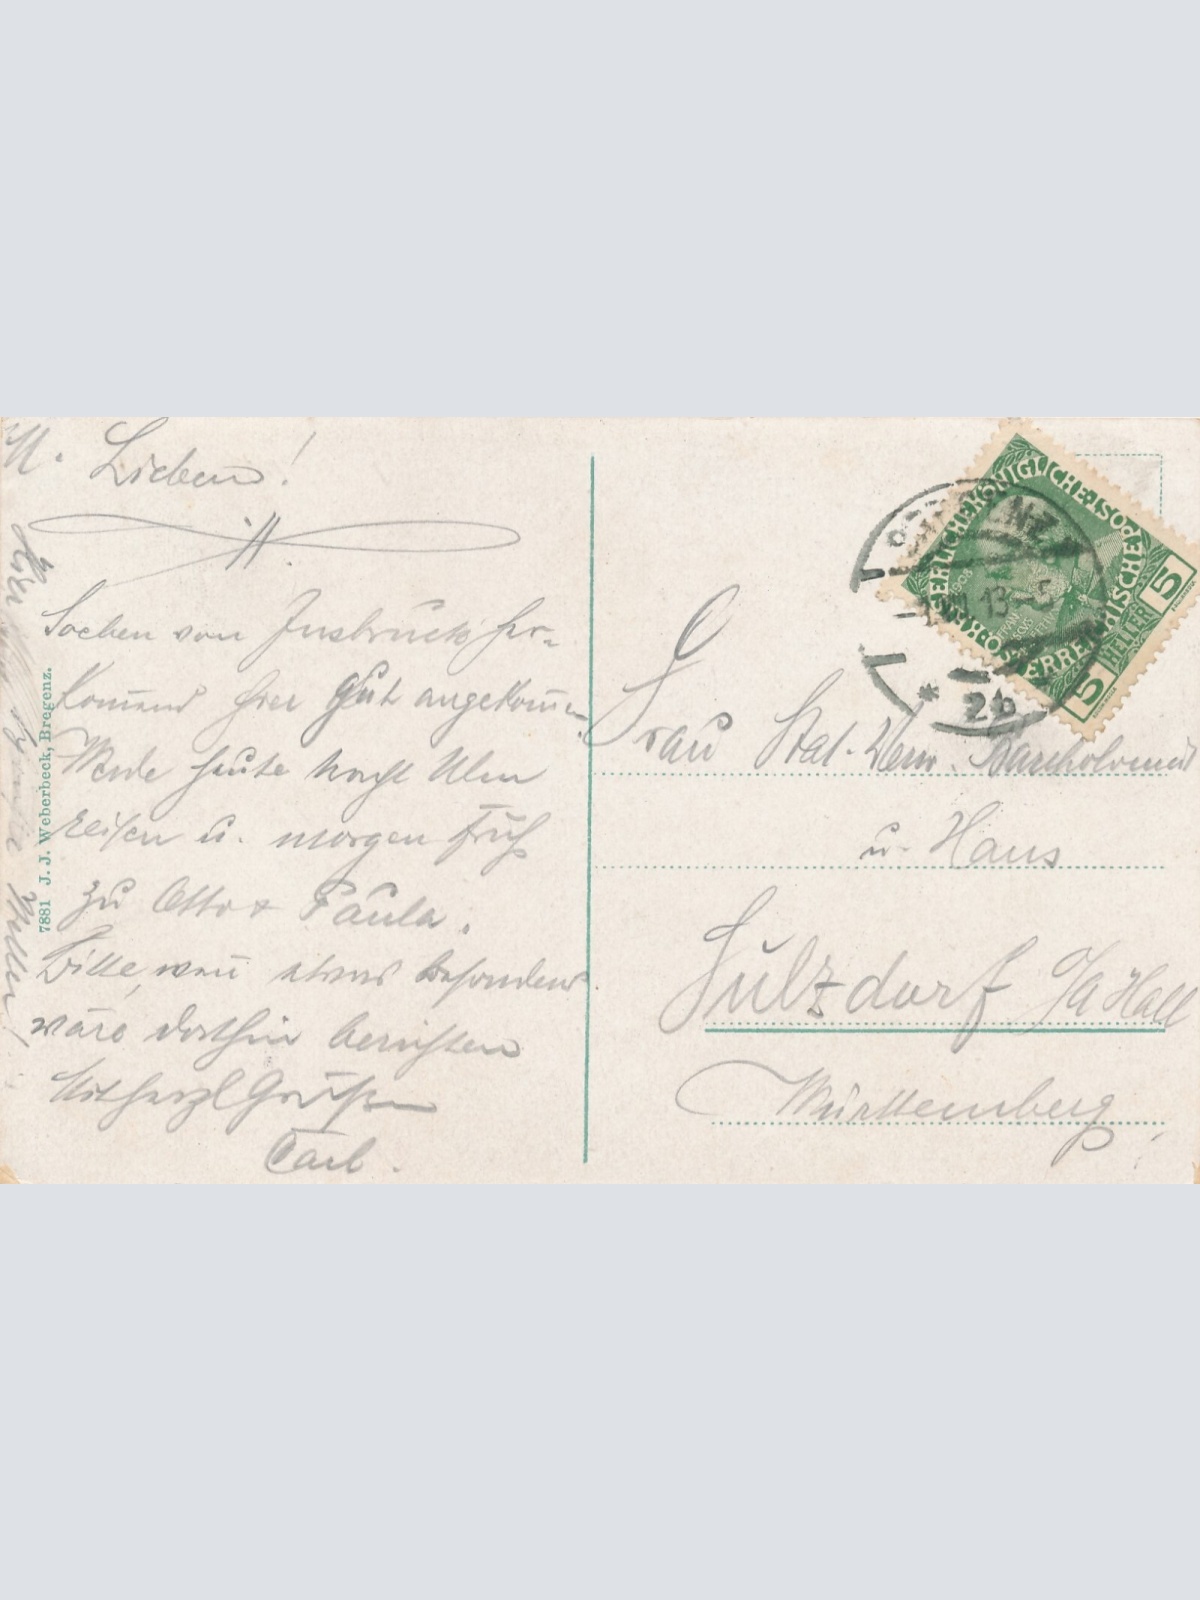 M. Lieben!
Soeben von Insbruck her-
komend hier gut angekomen.
Werde heute nacht Ulm
reisen u. morgen früh
zu Otto & Paula.
Bitte, wen etwas besonders
wäre dorthin berichten
Mit herzl Grüßen
Carl.
7881 J. J. Weberbeck, Bregenz.
KAISERLICHEKÖNIGLICHE POST
ÖSTERREICHISCHE
1908
5 HELLER 5
13-5
* 2b
Frau Stat. Verw. Bartholomä
u. Haus
Sulzdorf O/A Hall
Württemberg